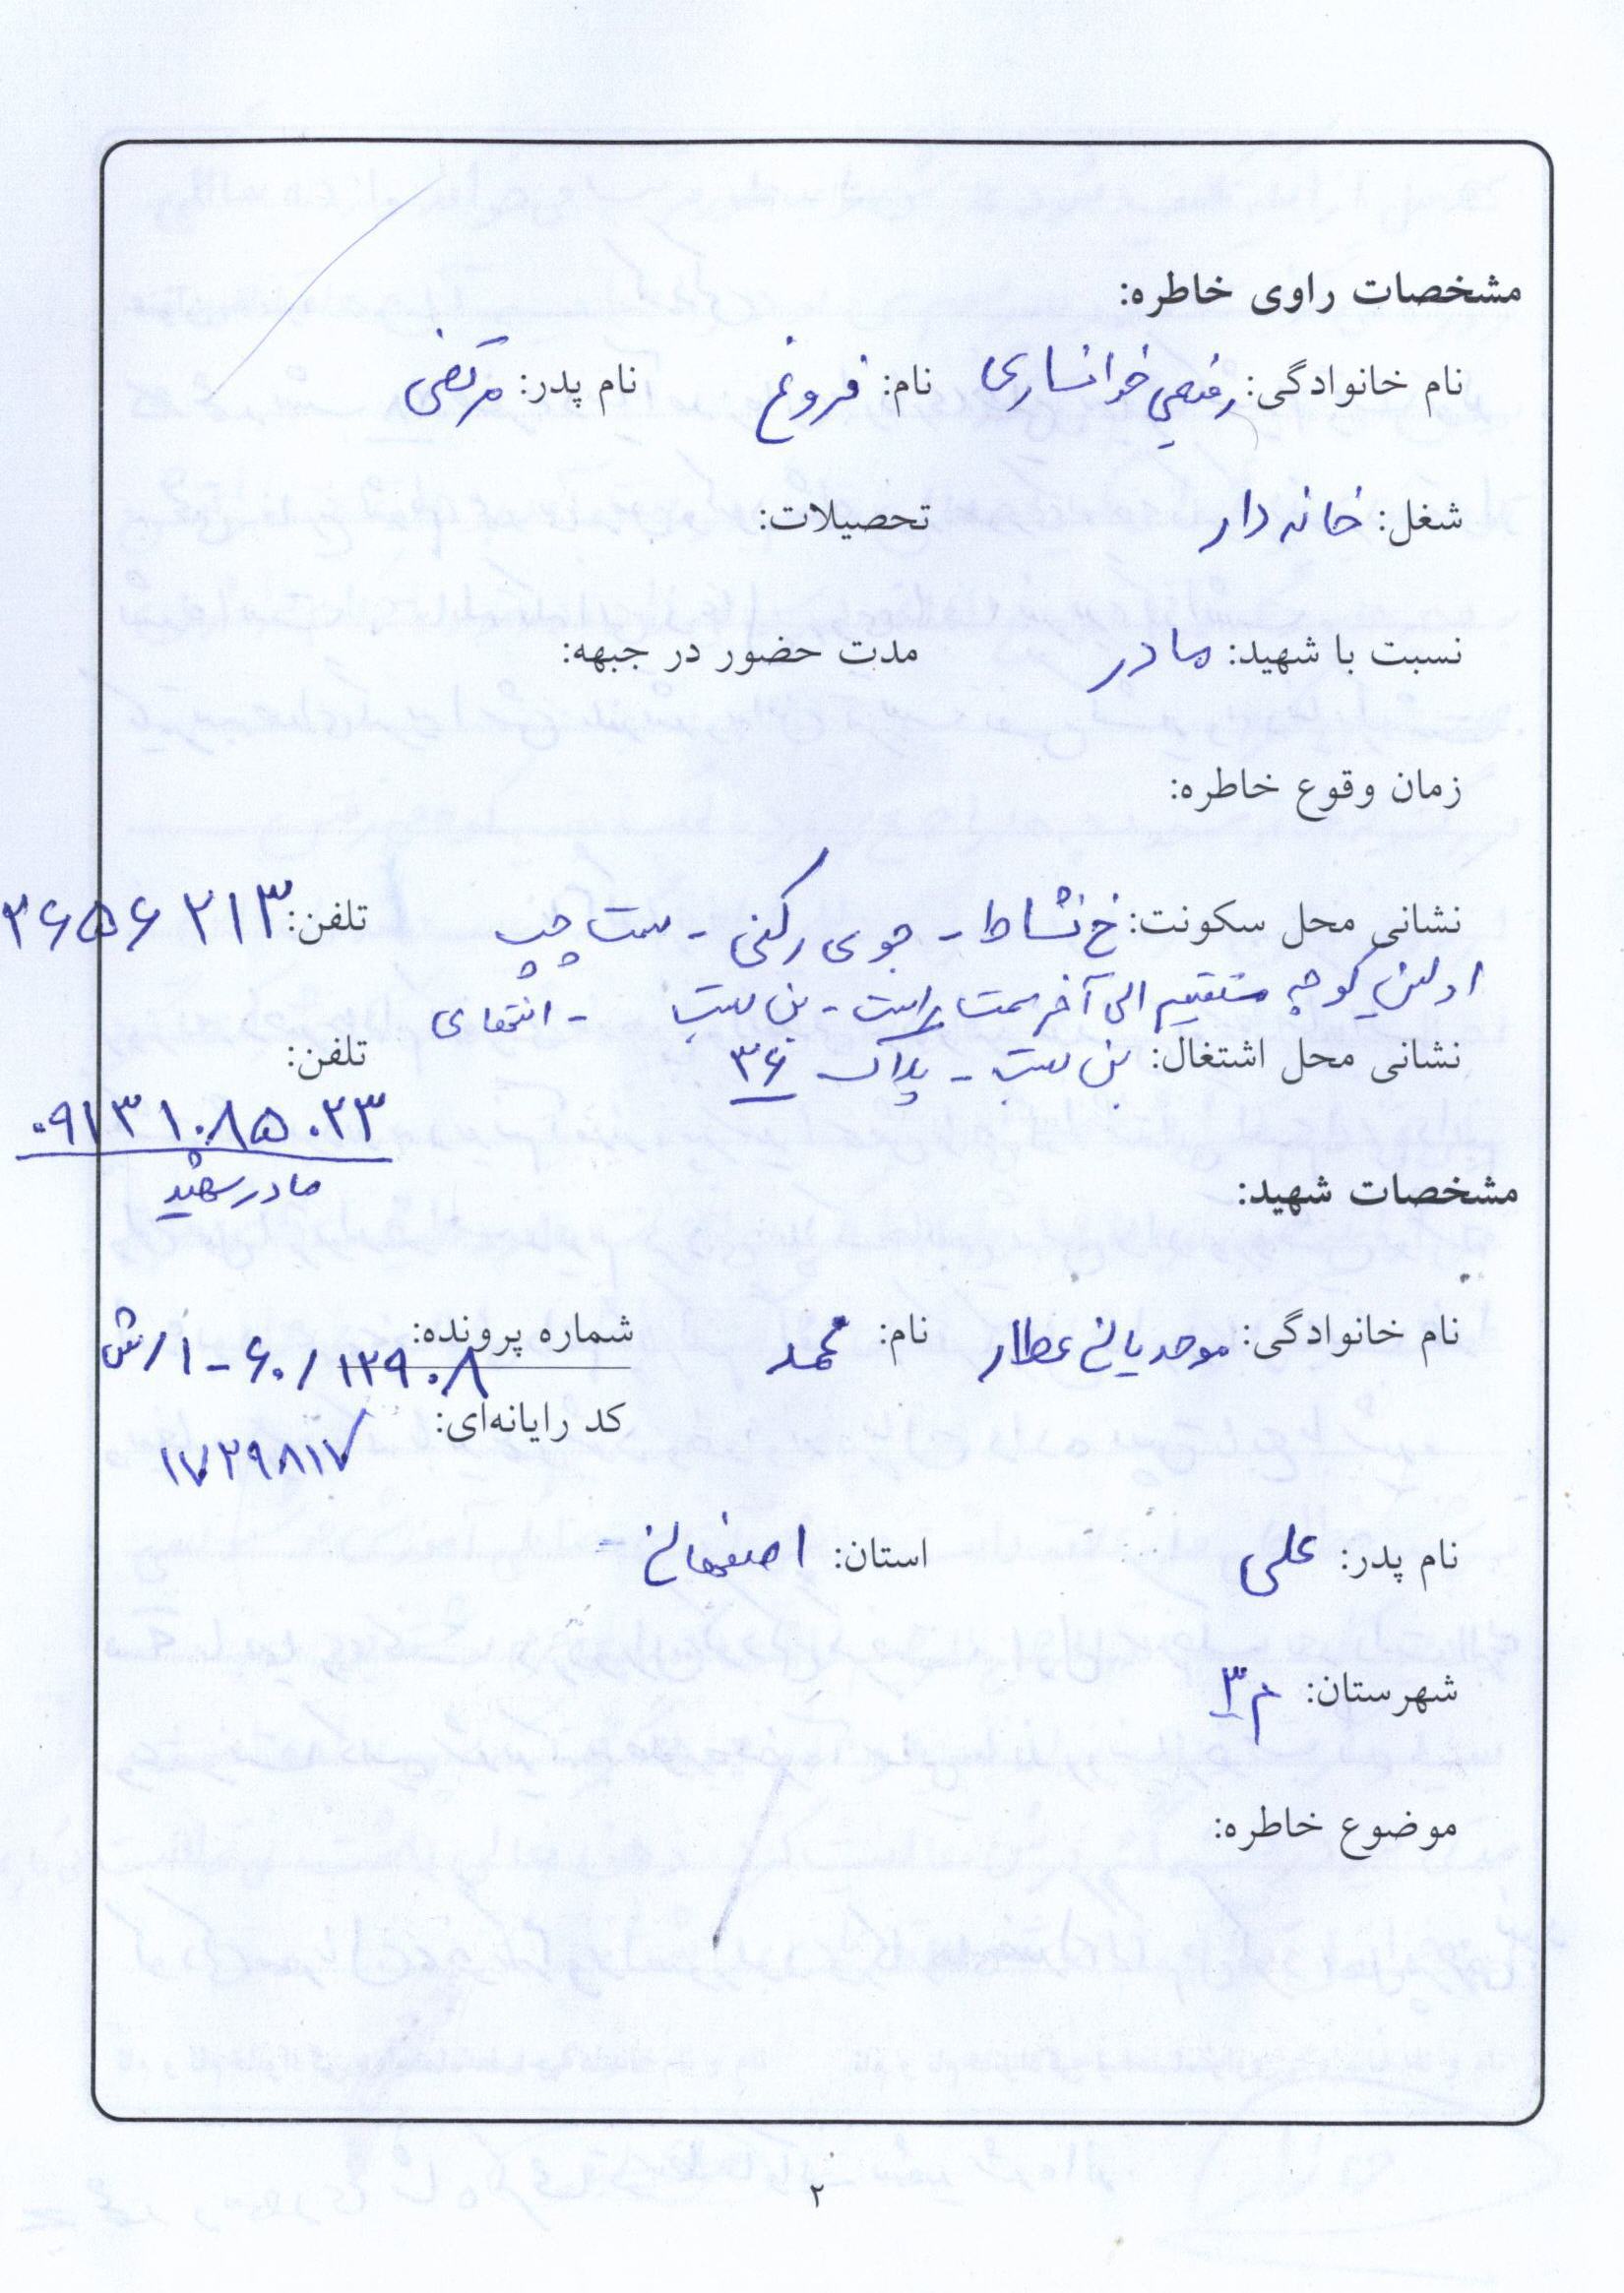 مشخصات راوی خاطره:
نام خانوادگی: رفیعی خوانساری نام: فروغ نام پدر: مرتضی
شغل: خانه دار تحصیلات:
نسبت با شهید: مادر مدت حضور در جبهه:
زمان وقوع خاطره:
نشانی محل سکونت: خ نشاط - جوی رکنی - سمت چپ تلفن: ۲۶۵۶۲۱۳
اولین کوچه مستقیم الی آخر سمت راست - بن بست - انتهای
نشانی محل اشتغال: بن بست - پلاک ۳۶ تلفن:
۰۹۱۳۱۰۸۵۰۲۳
مادر شهید
مشخصات شهید:
نام خانوادگی: موحدیان عطار نام: محمد شماره پرونده:
۱۲۹۰۸/۶۰-۱/ش
کد رایانه‌ای:
۱۷۲۹۸۱۷
نام پدر: علی استان: اصفهان -
شهرستان: م ۳
موضوع خاطره:
۲